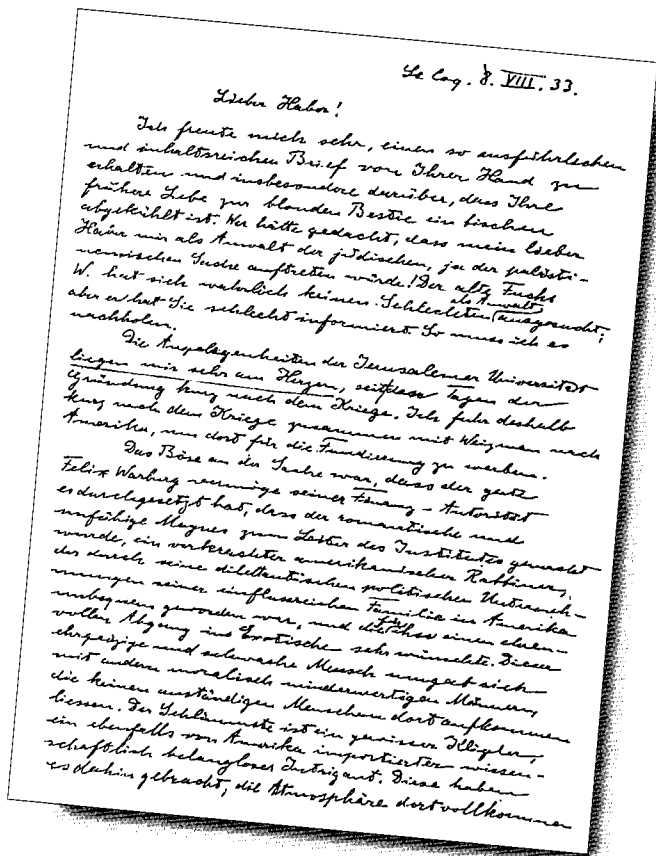 Le Coq. 8. VIII. 33.
Lieber Haber!
Ich freute mich sehr, einen so ausführlichen
und inhaltsreichen Brief von Ihrer Hand zu
erhalten und insbesondere darüber, dass Ihre
frühere Liebe zur blonden Bestie ein bischen
abgekühlt ist. Wer hätte gedacht, dass mein lieber
Haber mir als Anwalt der jüdischen, ja der palästi-
nensischen Sache auftreten würde! Der alte Fuchs
W. hat sich wahrlich keinen Schlechten als Anwalt ausgesucht;
aber er hat Sie schlecht informiert. So muss ich es
nachholen.
Die Angelegenheiten der Jerusalemer Universität
liegen mir sehr am Herzen, seit den Tagen der
Gründung kurz nach dem Kriege. Ich fuhr deshalb
kurz nach dem Kriege zusammen mit Weizman nach
Amerika, um dort für die Fundierung zu werben.
Das Böse an der Sache war, dass der gute
Felix Warburg vermöge seiner Finanz-Autorität
es durchgesetzt hat, dass der romantische und
unfähige Magnes zum Leiter des Institutes gemacht
wurde, ein verkrachter amerikanischer Rabbiner,
der durch seine dilettantischen politischen Unterneh-
mungen seiner einflussreichen Familie in Amerika
unbequem geworden war, und die für ihn einen ehren-
vollen Abgang ins Exotische sehr wünschte. Dieser
ehrgeizige und schwache Mensch umgab sich
mit andern moralisch minderwertigen Männern,
die keinen anständigen Menschen dort aufkommen
liessen. Der Schlimmste ist ein gewisser Kligler,
ein ebenfalls von Amerika importierter wissen-
schaftlich belangloser Intrigant. Diese haben
es dahin gebracht, die Atmosphäre dort vollkommen